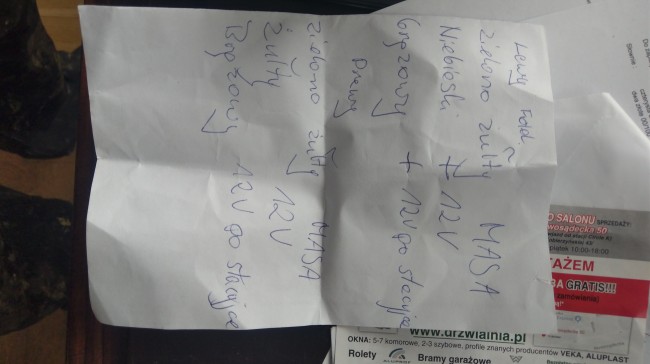 Lewy Fotel
Zielono żułty MASA
Niebieski + 12V
Brązowy + 12V po stacyjce
Prawy
Zielono żułty MASA
Żułty 12V
Brązowy 12V po stacyjce
O SALONU
SPRZEDAŻY:
wosądecka 50
piątek 10:00-18:00
TAŻEM
GA GRATIS!!!
www.drzwialnia.pl
OKNA: 5-7 komorowe, 2-3 szybowe, profile znanych producentów VEKA, ALUPLAST
Rolety Bramy garażowe